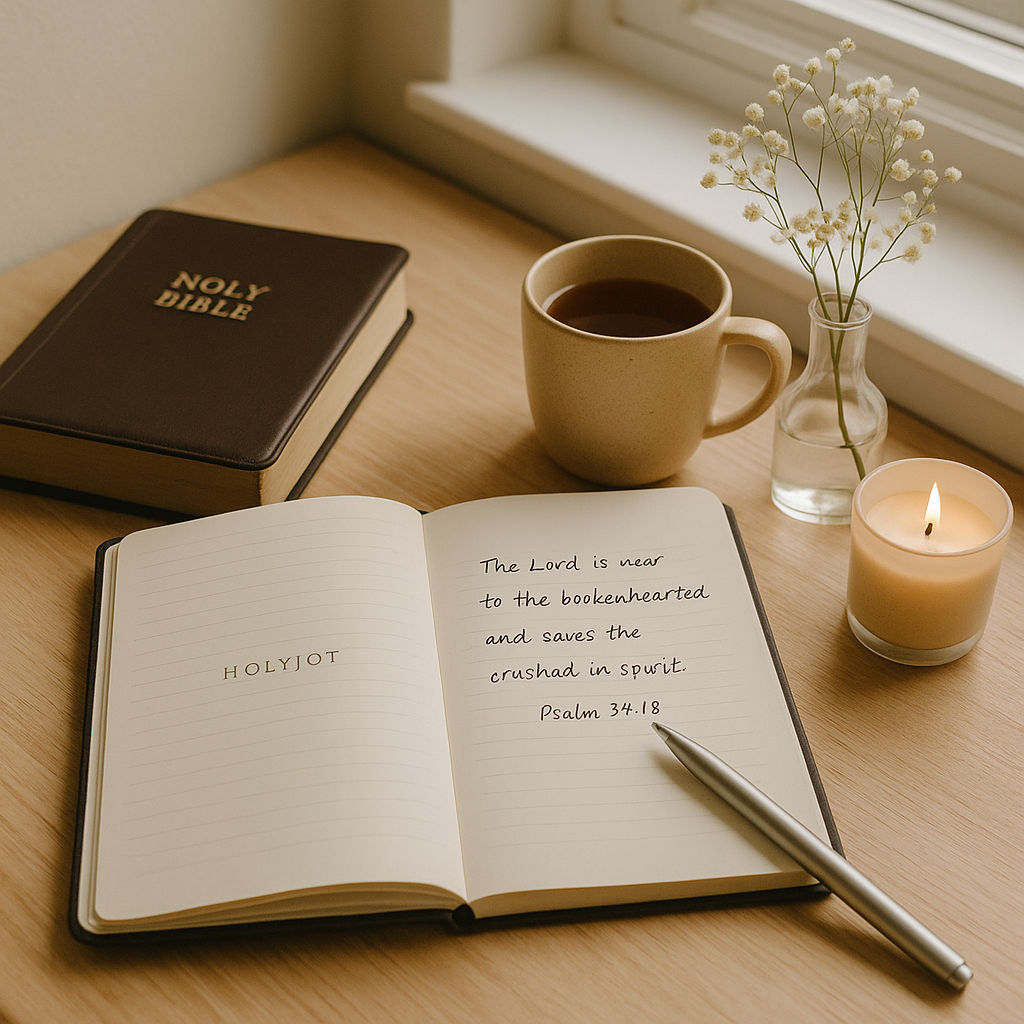 NOLY
BIBLE
HOLYJOT
The Lord is near
to the bookenhearted
and saves the
crushad in spurit.
Psalm 34.18